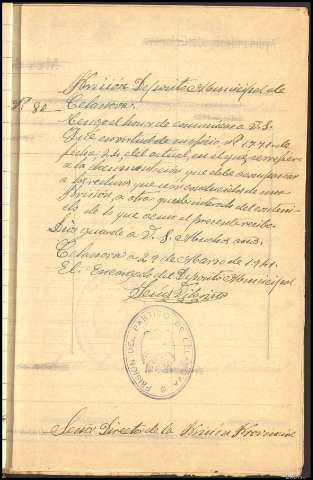 Prisión Depósito Municipal de
Nº 80 Celanova.
Tengo el honor de comunicar a V.S.
que en virtud de su oficio, nº 1771 de
fecha 24 del actual, en el que se refiere
a la documentación que debe acompañar
a los reclusos que son conducidos de una
Prisión, a otra queda interado del conteni-
do de lo que acuso el presente recibo.
Dios guarde a V. S. Muchos años.
Celanova a 29 de Marzo de 1941.
El Encargado del Depósito Municipal
PRISION DEL PARTIDO DE CELANOVA
Señor Director de la Prisión Provincial